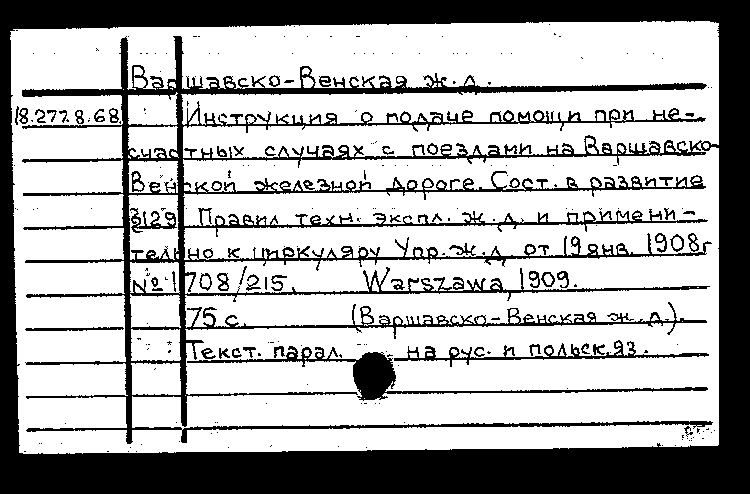 Варшавско-Венская ж.д.
18.277.8.68 Инструкция о подаче помощи при не-
счастных случаях с поездами на Варшавско-
Венской железной дороге. Сост. в развитие
§129 Правил техн. экспл. ж.д. и примени-
тельно к циркуляру Упр.ж.д. от 19 янв. 1908г
№ 1708/215. Warszawa, 1909.
75 с. (Варшавско-Венская ж.д.).
Текст. парал. на рус. и польск.яз.